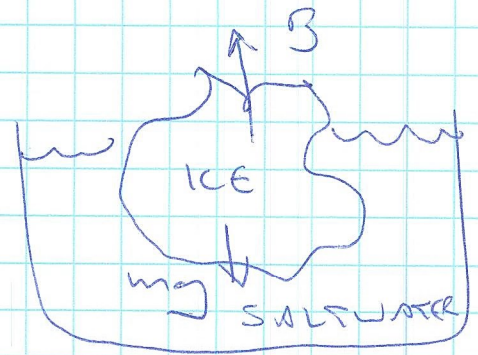 B
ICE
mg
SALTWATER